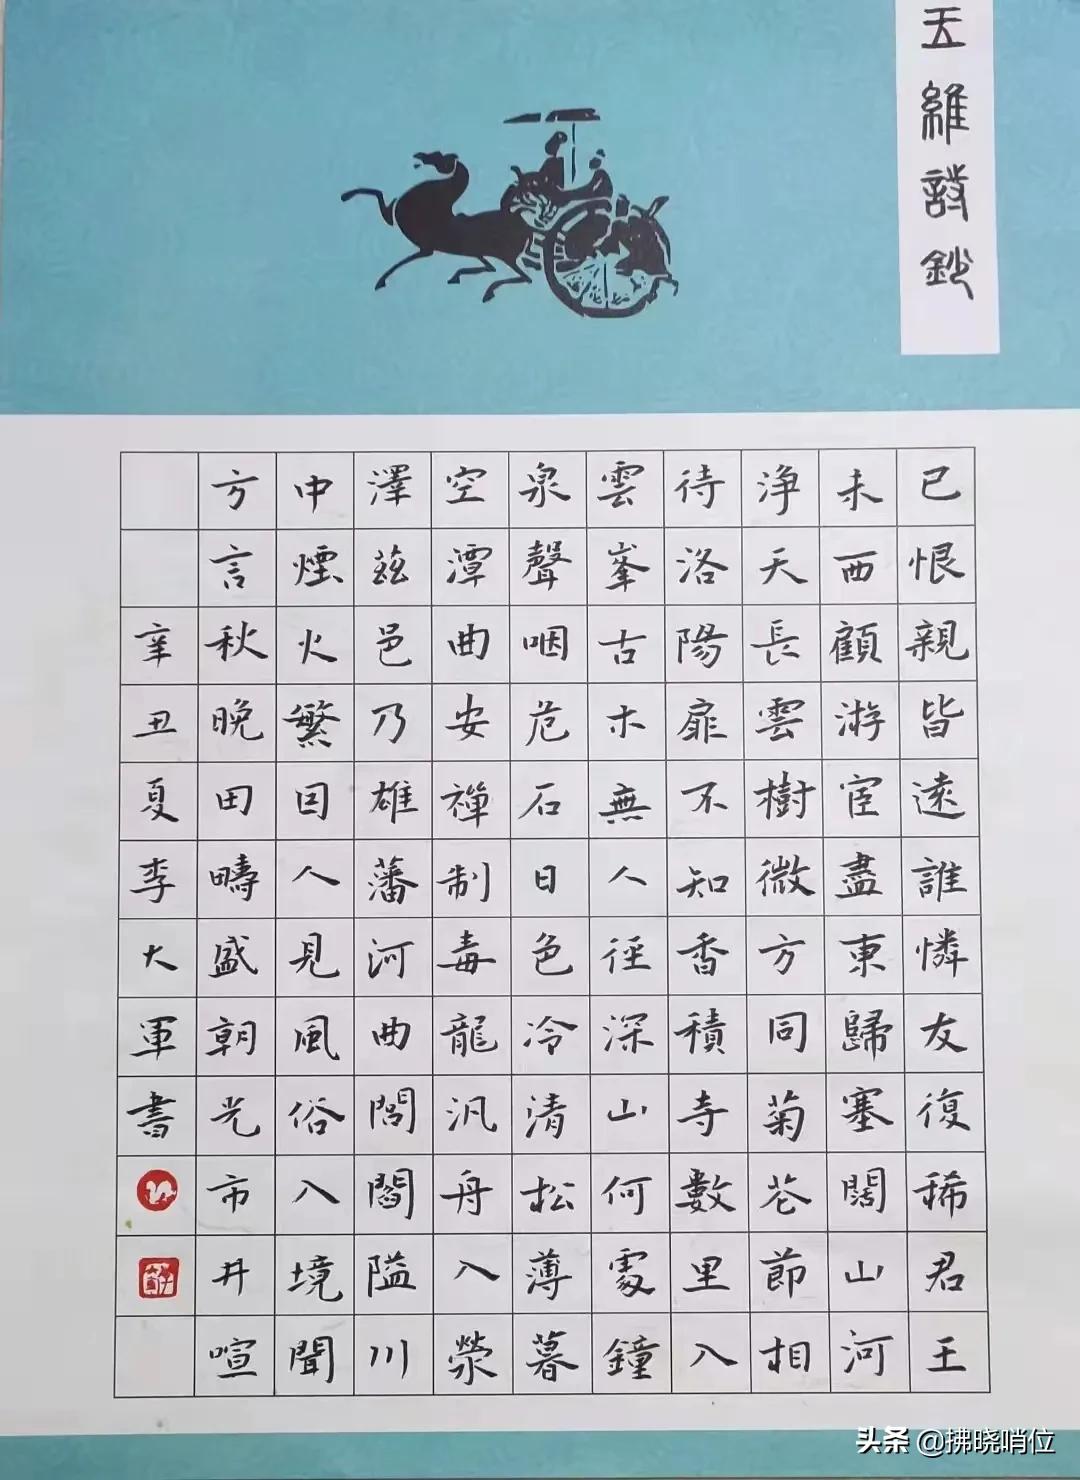 王維詩鈔
已恨親皆遠誰憐友復稀君王
未西顧游宦盡東歸塞闊山河
浄天長雲樹微方同菊花節相
待洛陽扉不知香積寺數里入
雲峯古木無人徑深山何處鐘
泉聲咽危石日色冷清松薄暮
空潭曲安禪制毒龍汎舟入滎
澤茲邑乃雄藩河曲閭閻隘川
中煙火繁因人見風俗入境聞
方言秋晚田疇盛朝光市井喧
辛丑夏李大軍書
头条 @拂晓哨位